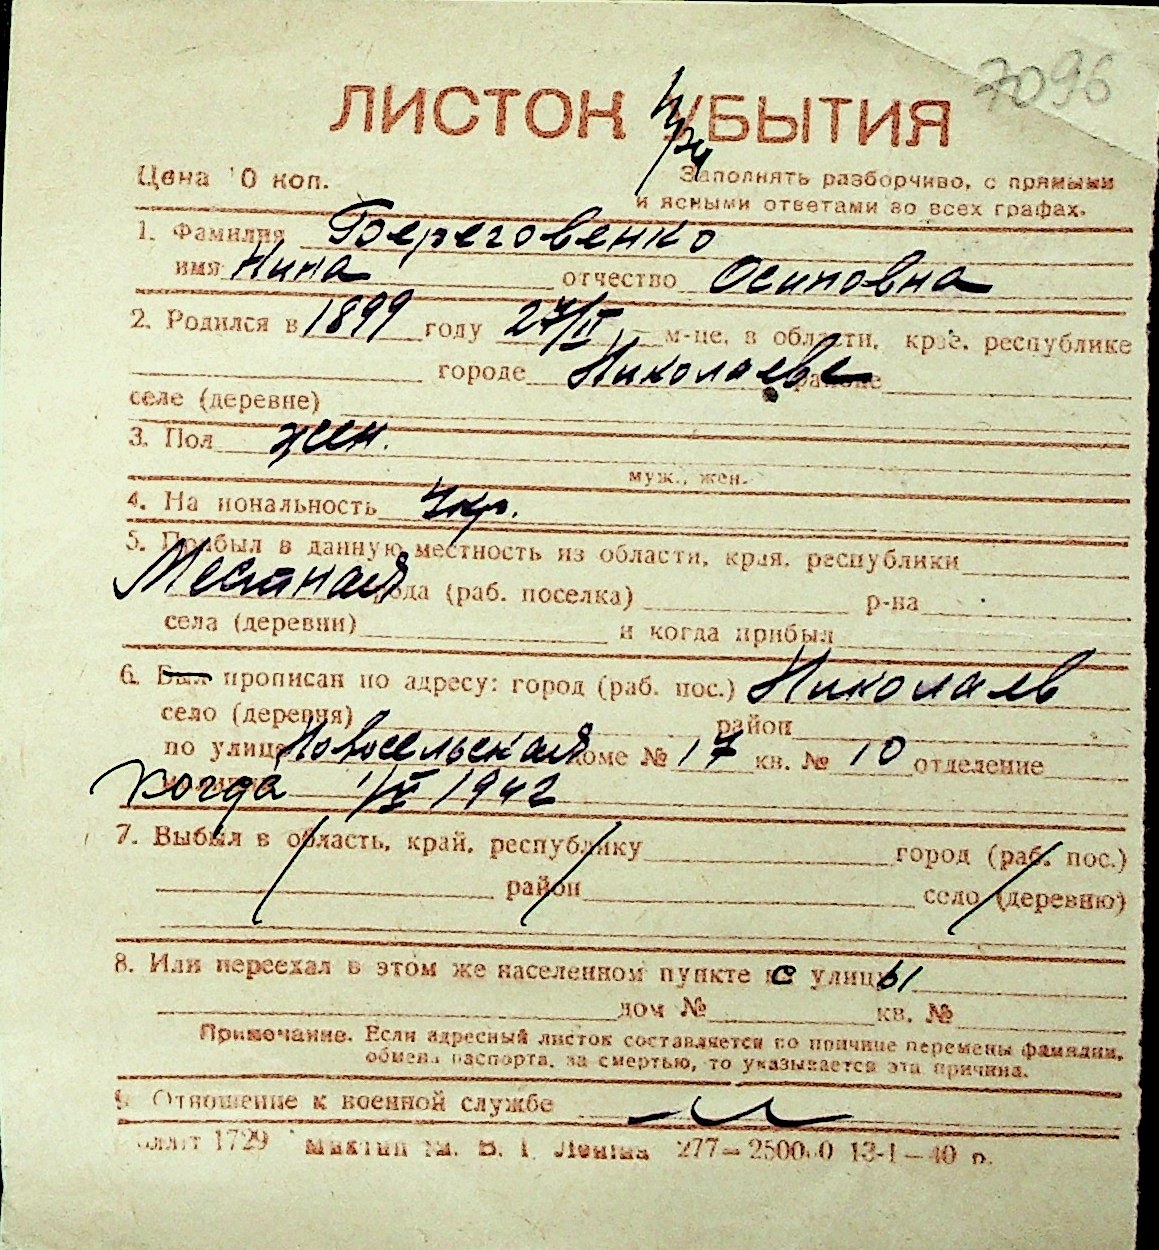 7096
ЛИСТОК УБЫТИЯ
при
Цена 10 коп.
Заполнять разборчиво, с прямыми
и ясными ответами во всех графах.
1. Фамилия Береговенко
имя Нина отчество Осиповна
2. Родился в 1899 году 27/II м-це, в области, крае, республике
городе Николаеве районе
селе (деревне)
3. Пол жен.
муж., жен.
4. Национальность Укр.
5. Прибыл в данную местность из области, края, республики
Местная города (раб. поселка) р-на
села (деревни) и когда прибыл
6. Был прописан по адресу: город (раб. пос.) Николаев
село (деревня) район
по улице Новосельская доме № 17 кв. № 10 отделение
когда 1/IV 1942
7. Выбыл в область, край, республику город (раб. пос.)
район село (деревню)
8. Или переехал в этом же населенном пункте с улицы
дом № кв. №
Примечание. Если адресный листок составляется по причине перемены фамилии,
обмена паспорта, за смертью, то указывается эта причина.
9. Отношение к военной службе
1729 В. І. Леніна 277—250000 13-I—40 р.